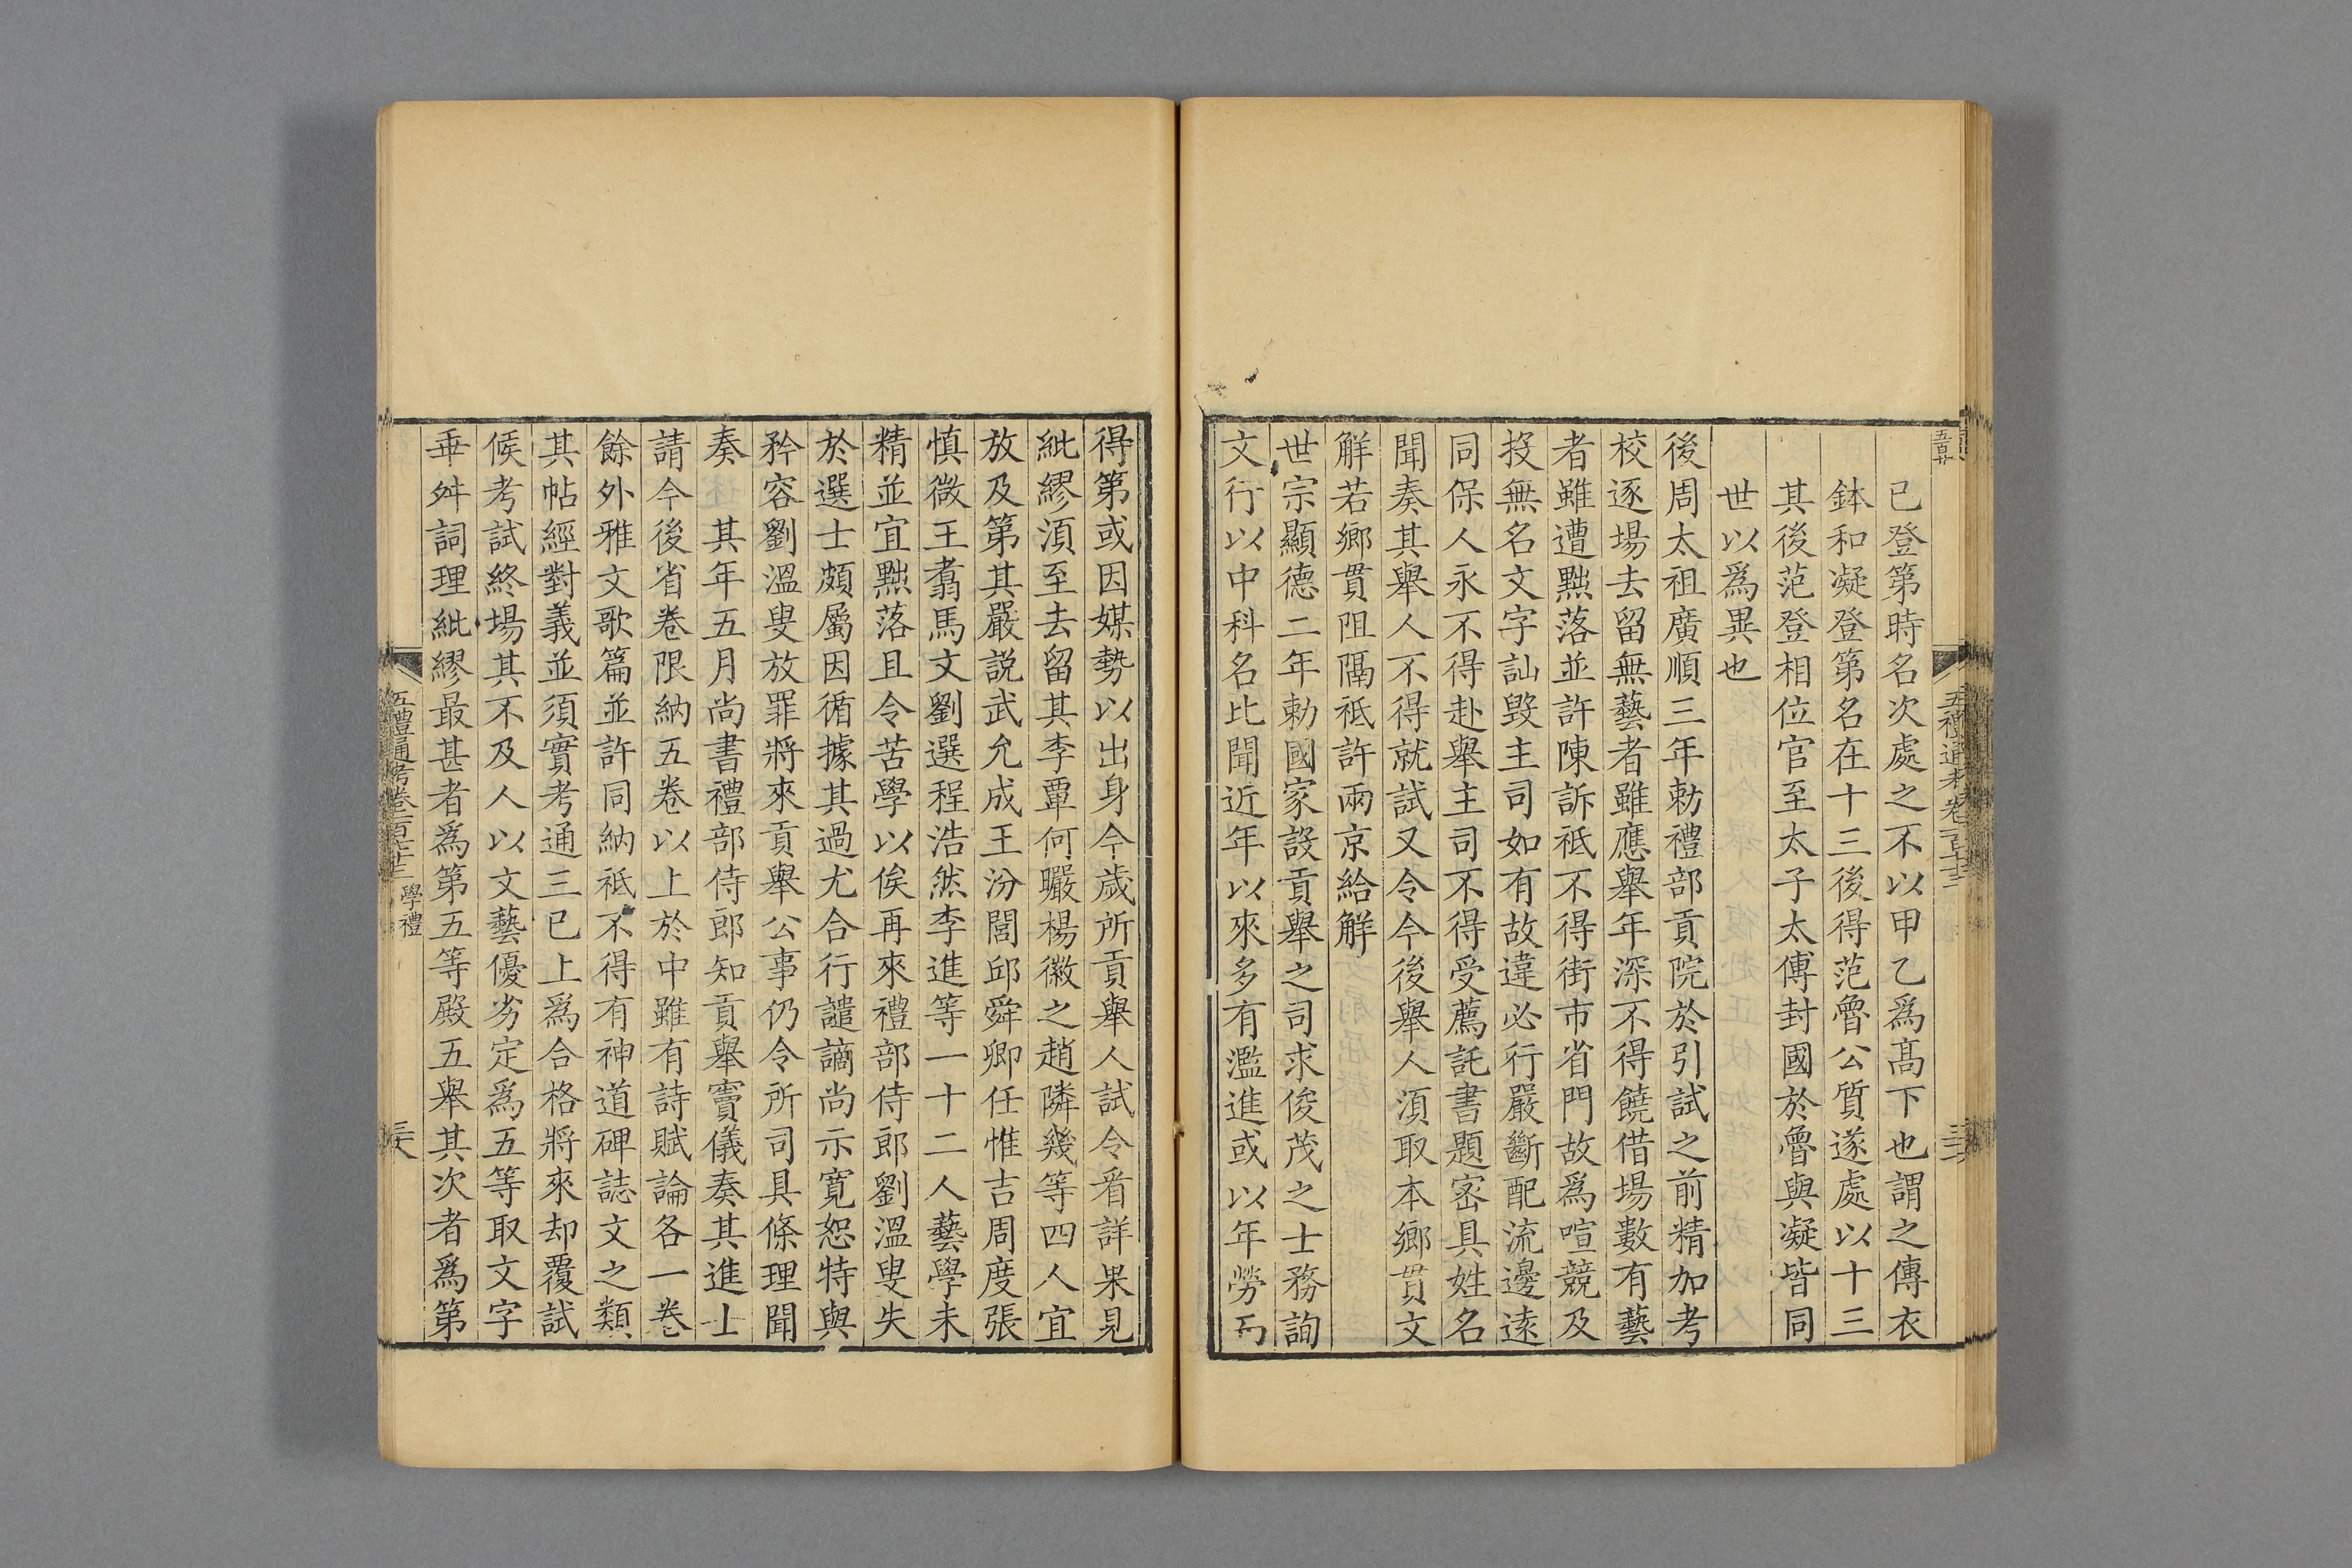 五百廿
五禮通考卷一百七十三
已登第時名次處之不以甲乙爲高下也謂之傳衣
鉢和凝登第名在十三後得范魯公質遂處以十三
其後范登相位官至太子太傅封國於魯與凝皆同
世以爲異也
後周太祖廣順三年勅禮部貢院於引試之前精加考
校逐場去留無藝者雖應舉年深不得饒借場數有藝
者雖遭黜落並許陳訴祗不得街市省門故爲喧競及
投無名文字訕毀主司如有故違必行嚴斷配流邊遠
同保人永不得赴舉主司不得受薦託書題密具姓名
聞奏其舉人不得就試又令今後舉人須取本鄉貫文
解若鄉貫阻隔祗許兩京給解
世宗顯德二年勅國家設貢舉之司求俊茂之士務詢
文行以中科名比聞近年以來多有濫進或以年勞而
得第或因媒勢以出身今歲所貢舉人試令看詳果見
紕繆須至去留其李覃何曮楊徽之趙隣幾等四人宜
放及第其嚴説武允成王汾閭邱舜卿任惟吉周度張
慎微王翥馬文劉選程浩然李進等一十二人藝學未
精並宜黜落且令苦學以俟再來禮部侍郎劉溫叟失
於選士頗屬因循據其過尤合行譴謫尚示寬恕特與
矜容劉溫叟放罪將來貢舉公事仍令所司具條理聞
奏　其年五月尚書禮部侍郎知貢舉竇儀奏其進士
請今後省卷限納五卷以上於中雖有詩賦論各一卷
餘外雅文歌篇並許同納祗不得有神道碑誌文之類
其帖經對義並須實考通三已上爲合格將來却覆試
候考試終場其不及人以文藝優劣定爲五等取文字
乖舛詞理紕繆最甚者爲第五等殿五舉其次者爲第
五禮通考卷一百七十三　學禮